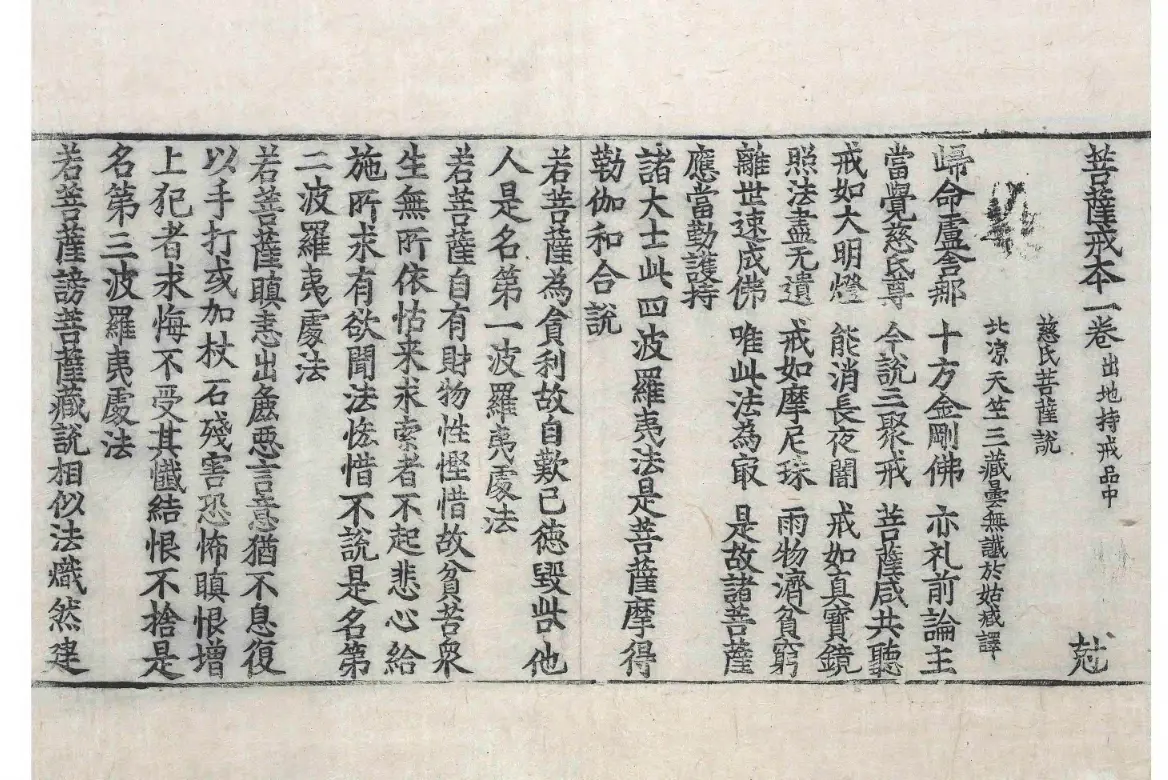 菩薩戒本一卷 出地持戒品中 尅
慈氏菩薩說
北涼天竺三藏曇無讖於姑臧譯
歸命盧舍那 十方金剛佛 亦礼前論主
當覺慈氏尊 今說三聚戒 菩薩咸共聽
戒如大明燈 能消長夜闇 戒如真寶鏡
照法盡无遺 戒如摩尼珠 雨物濟貧窮
離世速成佛 唯此法為㝡 是故諸菩薩
應當勤護持
諸大士此四波羅夷法是菩薩摩得
勒伽和合說
若菩薩為貪利故自歎己德毀呰他
人是名第一波羅夷處法
若菩薩自有財物性慳惜故貧苦衆
生無所依怙来求索者不起悲心給
施所求有欲聞法悋惜不說是名第
二波羅夷處法
若菩薩瞋恚出麁惡言意猶不息復
以手打或加杖石殘害恐怖瞋恨增
上犯者求悔不受其懺結恨不捨是
名第三波羅夷處法
若菩薩謗菩薩藏說相似法熾然建